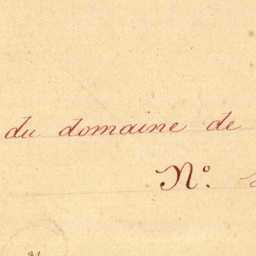 du domaine de
N°.